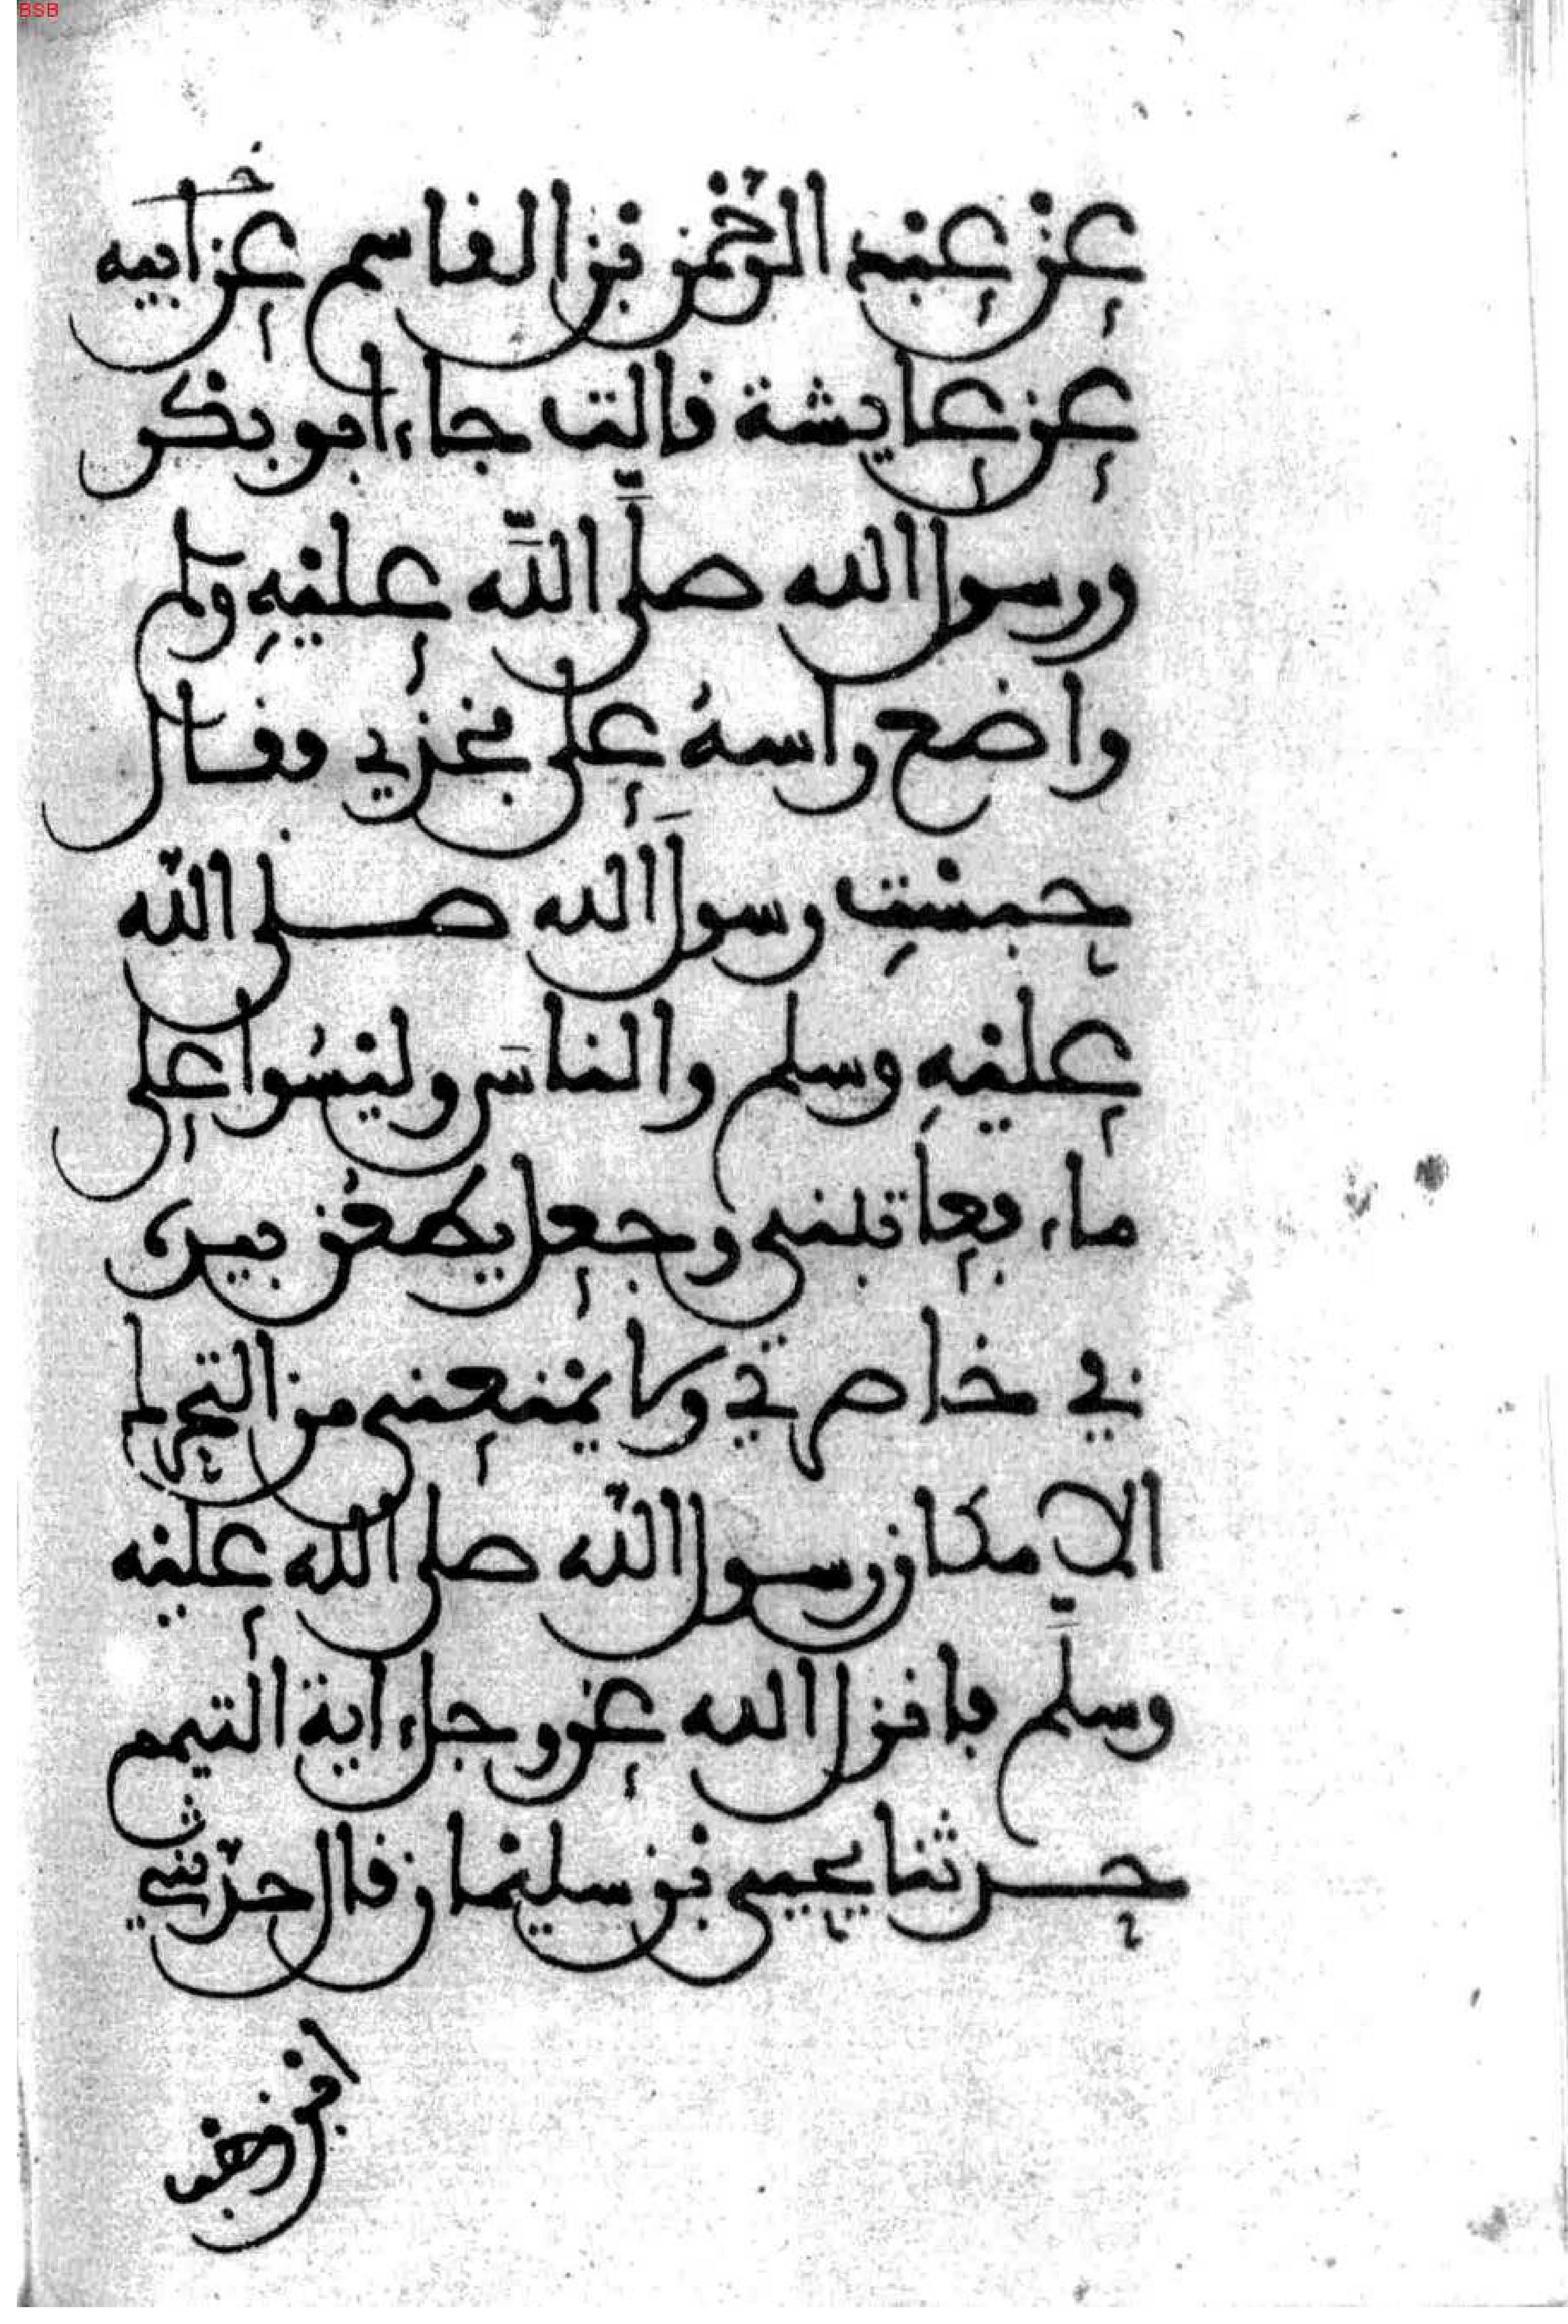 BSB
عن عبد الرحمن بن القاسم عن ابيه
عن عايشة قالت جاء ابو بكر
ورسول الله صلى الله عليه وسلم
واضع راسه على فخذي فقال
حبست رسول الله صلى الله
عليه وسلم والناس وليسوا على
ماء فعاتبني وجعل يطعن بيده
في خاصرتي ولا يمنعني من التحرك
الا مكان رسول الله صلى الله عليه
وسلم فانزل الله عز وجل اية التيمم
حدثنا يحيى بن سليمان قال حدثني
ابن وهب